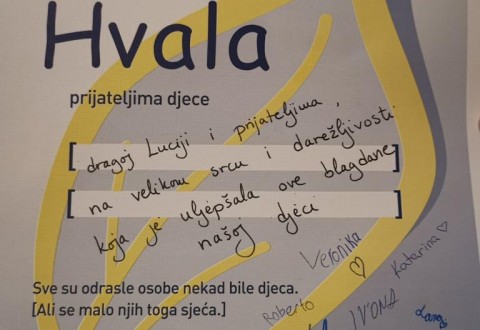 Hvala
prijateljima djece
dragoj Luciji i prijateljima,
na velikom srcu i darežljivosti
koja je uljepšala ove blagdane
našoj djeci
Sve su odrasle osobe nekad bile djeca.
[Ali se malo njih toga sjeća.]
Veronika
Katarina
Roberto
IVONA